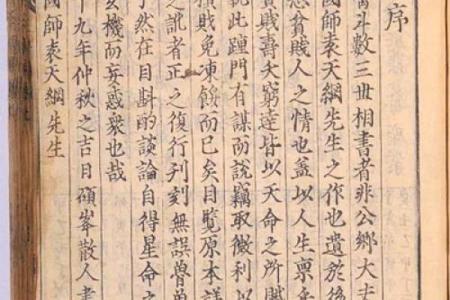 序
奮斗數三世相書者非公鄉大夫
國師袁天綱先生之作也遺於後
忽貧賤人之情也蓋以人生禀
貧賤壽夭窮達皆以天命之所賦
執此踵門有謀而說竊取微利以
積貲免凍餒而已矣目覧原本詳
之訛者正之復行刋刻無誤魯
了然在目斟酌談論自得星命之
玄機而妄惑衆也哉
十九年仲秋之吉日碩峯散人書
國師袁天綱先生